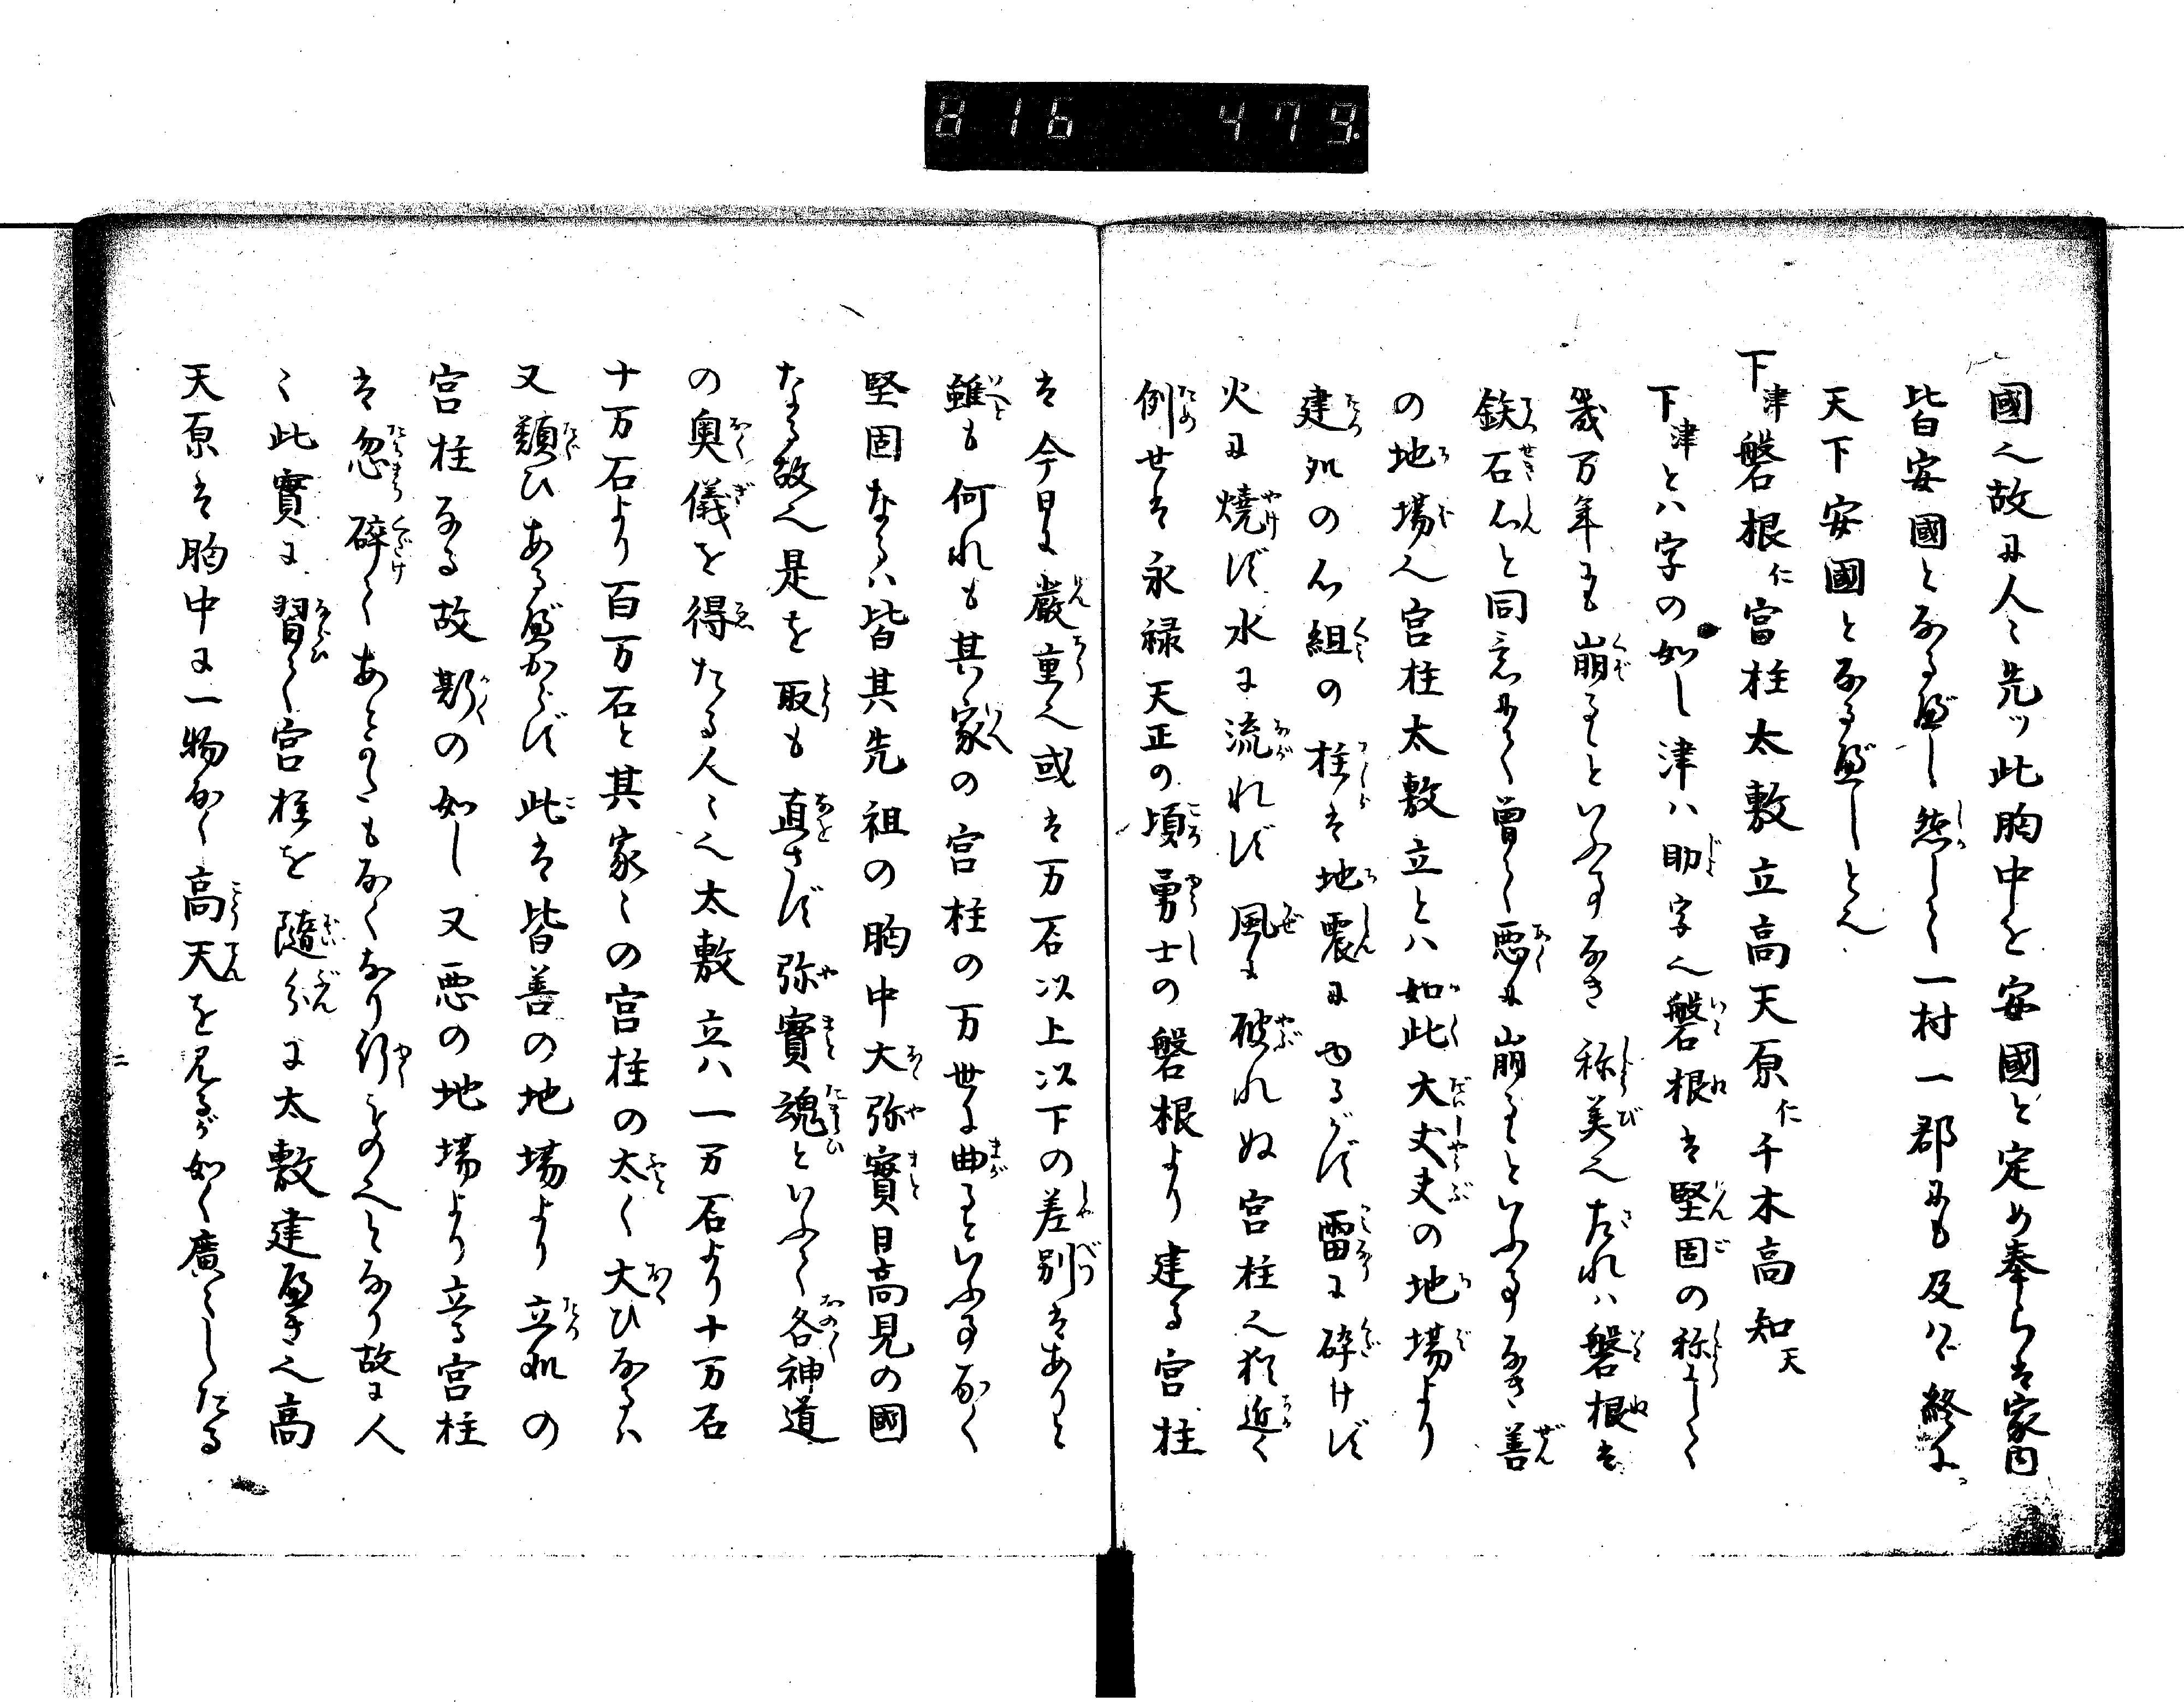 816 479.
國也故に人々先ッ此胸中を安國と定め奉らは家内
皆安國となるべし然して一村一郡にも及バ終に
天下安國となるべしと也
下津磐根仁宮柱太敷立高天原仁千木高知天
下津とハ字の如し津ハ助字也磐根は堅固の称にして
幾万年も崩るといふ事なき称美也されハ磐根は
鉄石心と同意にて曽て悪に崩るといふ事なき善
の地場也宮柱太敷立とハ如此大丈夫の地場より
建処の心組の柱は地震にゆるがず雷に砕けず
火に焼ず水に流れず風も破れぬ宮柱也猶近く
例せは永禄天正の頃勇士の磐根より建る宮柱
は今日に嚴重也或は万石以上以下の差別はありと
雖も何れも其家の宮柱の万世に曲るといふ事なく
堅固なるハ皆其先祖の胸中大弥實日高見の國
なる故也是を取も直さず弥實魂といふて各神道
の奥儀を得たる人々也太敷立ハ一万石より十万石
十万石より百万石と其家々の宮柱の太く大ひなるハ
又類ひあるべからず此は皆善の地場より立処の
宮柱なる故斯の如し又悪の地場より立る宮柱
は忽碎てあとのうもなくなり行ものへとなり故に人
々此實に習て宮柱を隨分に太敷建べき也高
天原は胸中に一物なく高天を見るが如く廣々したる
二